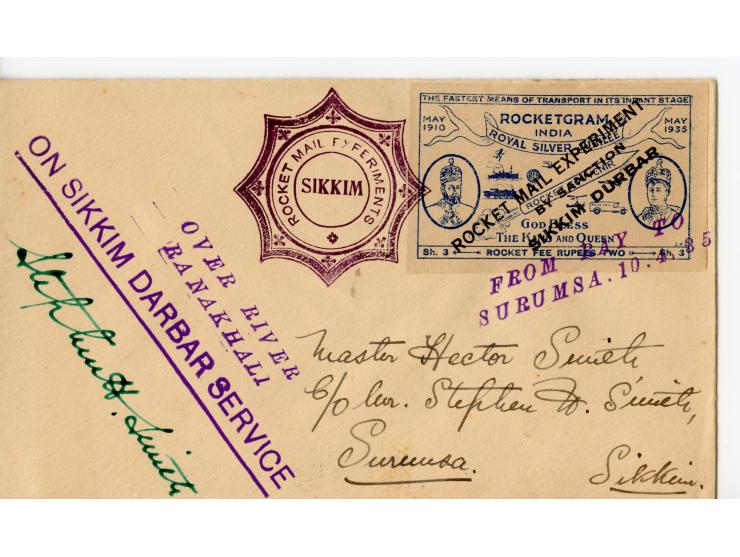 ROCKET MAIL EXPERIMENTS
SIKKIM
THE FASTEST MEANS OF TRANSPORT IN ITS INFANT STAGE
MAY 1910
ROCKETGRAM
INDIA
ROYAL SILVER JUBILEE
MAY 1935
ROCKET MAIL EXPERIMENT
BY SANCTION
SIKKIM DURBAR
GOD BLESS
THE KING AND QUEEN
Sh. 3
ROCKET FEE RUPEES TWO
Sh. 3
FROM RAY TO
SURUMSA. 10.4.35
ON SIKKIM DARBAR SERVICE
OVER RIVER
RANAKHALI
Stephen H. Smith
Master Hector Smith
C/o Mr. Stephen H. Smith,
Surumsa.
Sikkim.